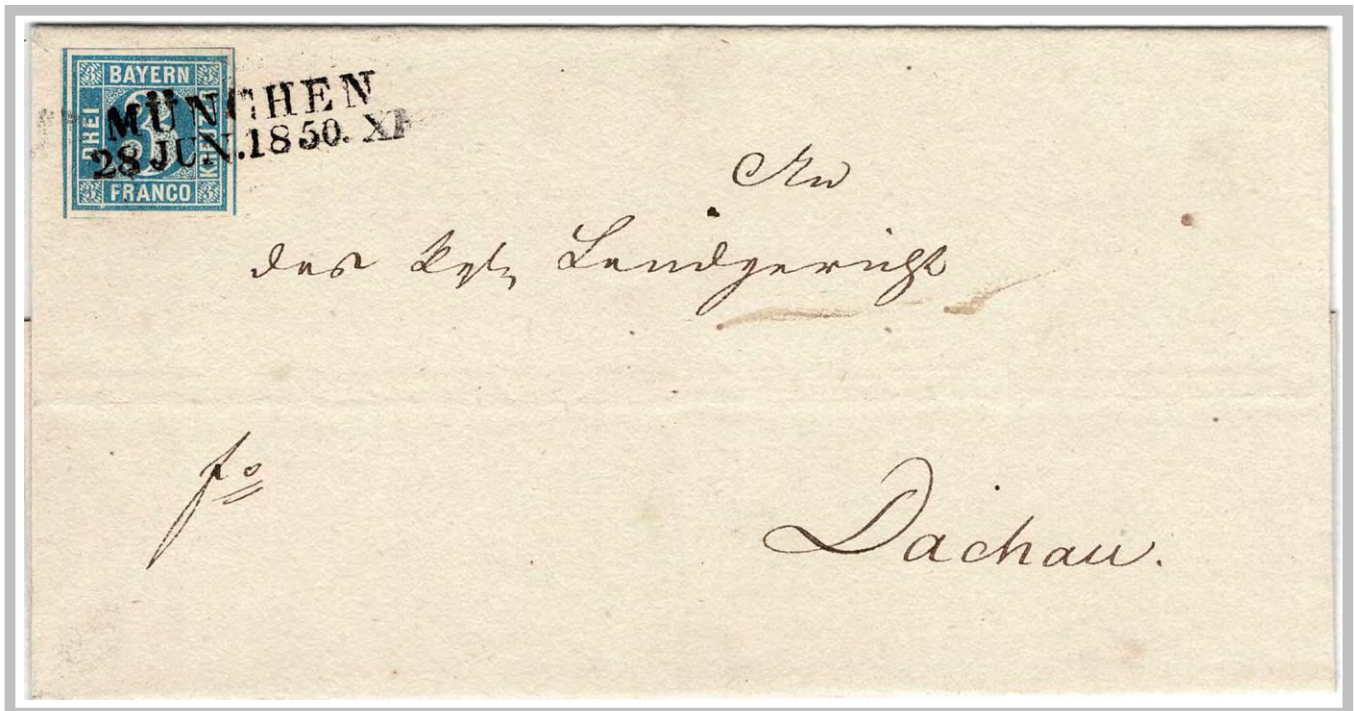 BAYERN
DREI
3
KREUZER
FRANCO
MÜNCHEN
28 JUN. 1850. XI
An
das Kgl. Landgericht
fo
Dachau.